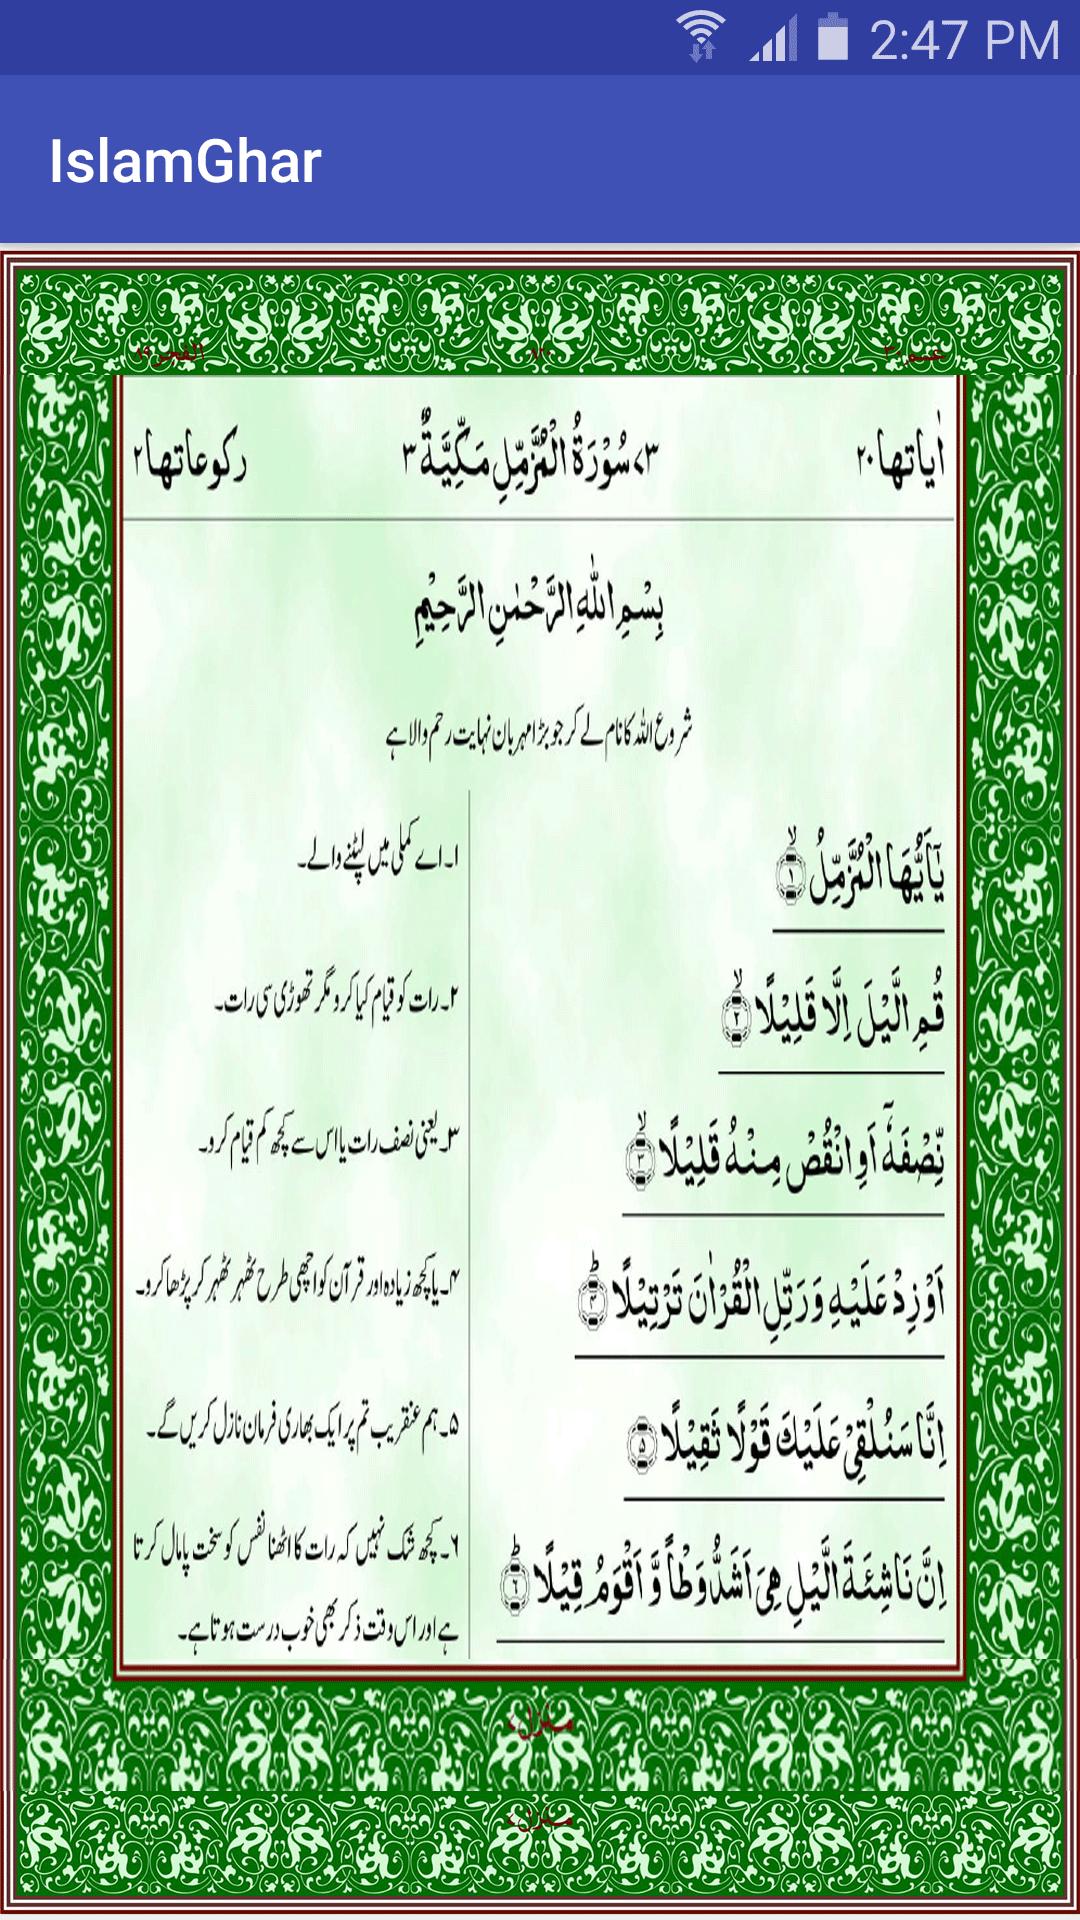 2:47 PM
IslamGhar
عـم ٣٠
الفجر ٨٩
اٰیاتھا ٢٠
٧٣ سُوْرَةُ الْمُزَّمِّلِ مَکِّیَّةٌ ٣
رکوعاتھا ٢
بِسْمِ اللّٰهِ الرَّحْمٰنِ الرَّحِیْمِ
شروع اللہ کا نام لے کر جو بڑا مہربان نہایت رحم والا ہے
یٰۤاَیُّهَا الْمُزَّمِّلُ ۙ﴿١﴾
١۔ اے کملی میں لپٹنے والے۔
قُمِ الَّیْلَ اِلَّا قَلِیْلًا ۙ﴿٢﴾
٢۔ رات کو قیام کیا کرو مگر تھوڑی سی رات۔
نِّصْفَهٗۤ اَوِ انْقُصْ مِنْهُ قَلِیْلًا ۙ﴿٣﴾
٣۔ یعنی نصف رات یا اس سے کچھ کم قیام کرو۔
اَوْ زِدْ عَلَیْهِ وَ رَتِّلِ الْقُرْاٰنَ تَرْتِیْلًا ؕ﴿۴﴾
۴۔ یا کچھ زیادہ اور قرآن کو اچھی طرح ٹھہر ٹھہر کر پڑھا کرو۔
اِنَّا سَنُلْقِیْ عَلَیْكَ قَوْلًا ثَقِیْلًا ﴿۵﴾
۵۔ ہم عنقریب تم پر ایک بھاری فرمان نازل کریں گے۔
اِنَّ نَاشِئَةَ الَّیْلِ هِیَ اَشَدُّ وَطْاً وَّ اَقْوَمُ قِیْلًا ؕ﴿٦﴾
٦۔ کچھ شک نہیں کہ رات کا اٹھنا نفس کو سخت پامال کرتا
ہے اور اس وقت ذکر بھی خوب درست ہوتا ہے۔
منزل ٧
منزل ٧